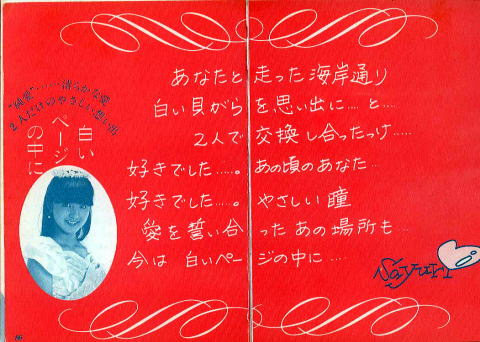 "純愛"……清らかな愛
2人だけのやさしい想い出
白い
ページ
の中に
あなたと走った海岸通り
白い貝がらを思い出に……と……
2人で交換し合ったっけ……
好きでした……。あの頃のあなた…
好きでした……。やさしい瞳
愛を誓い合ったあの場所も…
今は白いページの中に……
Sayuri